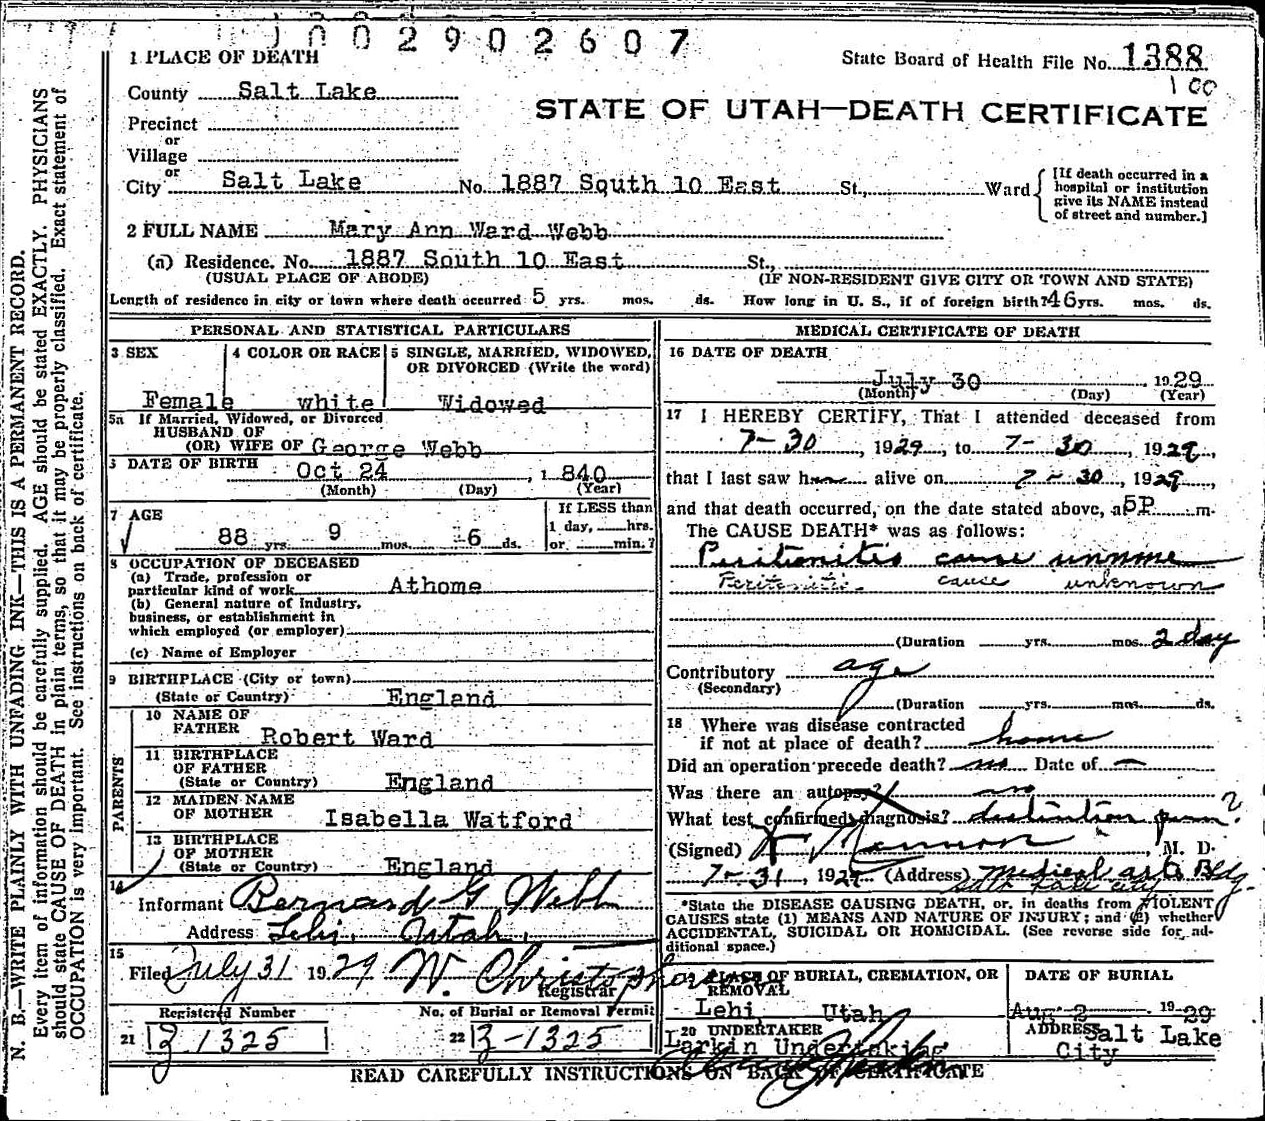 1002902607
1 PLACE OF DEATH
State Board of Health File No. 1388
100
County Salt Lake
STATE OF UTAH—DEATH CERTIFICATE
Precinct
or
Village
or
City Salt Lake No. 1887 South 10 East St., Ward
[If death occurred in a
hospital or institution
give its NAME instead
of street and number.]
2 FULL NAME Mary Ann Ward Webb
(a) Residence. No. 1887 South 10 East St.,
(USUAL PLACE OF ABODE) (IF NON-RESIDENT GIVE CITY OR TOWN AND STATE)
Length of residence in city or town where death occurred 5 yrs. mos. ds. How long in U. S., if of foreign birth? 46 yrs. mos. ds.
PERSONAL AND STATISTICAL PARTICULARS
3 SEX 4 COLOR OR RACE 5 SINGLE, MARRIED, WIDOWED,
OR DIVORCED (Write the word)
Female white Widowed
5a If Married, Widowed, or Divorced
HUSBAND OF
(OR) WIFE OF George Webb
DATE OF BIRTH Oct 24, 1840
(Month) (Day) (Year)
7 AGE If LESS than
1 day, hrs.
88 yrs. 9 mos. 6 ds. or min.?
8 OCCUPATION OF DECEASED
(a) Trade, profession or
particular kind of work Athome
(b) General nature of Industry,
business, or establishment in
which employed (or employer)
(c) Name of Employer
9 BIRTHPLACE (City or town)
(State or Country) England
PARENTS
10 NAME OF
FATHER Robert Ward
11 BIRTHPLACE
OF FATHER
(State or Country) England
12 MAIDEN NAME
OF MOTHER Isabella Watford
13 BIRTHPLACE
OF MOTHER
(State or Country) England
14
Informant Bernard G Webb
Address Lehi, Utah.
15
Filed July 31 1929
Registrar
Registered Number No. of Burial or Removal Permit
21 1325 22 -1325
MEDICAL CERTIFICATE OF DEATH
16 DATE OF DEATH
July 30, 1929
(Month) (Day) (Year)
17 I HEREBY CERTIFY, That I attended deceased from
7-30, 1929, to 7-30, 1929,
that I last saw her alive on 7-30, 1929,
and that death occurred, on the date stated above, at 5P m.
The CAUSE DEATH* was as follows:
Peritionitis cause
Peritonitis cause unknown
(Duration yrs. mos. 2 day
Contributory age
(Secondary)
(Duration yrs. mos. ds.
18 Where was disease contracted
if not at place of death? home
Did an operation precede death? no Date of —
Was there an autopsy? no
What test confirmed diagnosis?
(Signed) M. D.
7-31, 1929 (Address) Medical arts Bldg.
Salt Lake City
*State the DISEASE CAUSING DEATH, or, in deaths from VIOLENT
CAUSES state (1) MEANS AND NATURE OF INJURY; and (2) whether
ACCIDENTAL, SUICIDAL OR HOMICIDAL. (See reverse side for ad-
ditional space.)
PLACE OF BURIAL, CREMATION, OR
REMOVAL
Lehi, Utah
DATE OF BURIAL
Aug 2 1929
20 UNDERTAKER
Larkin Undertaking
ADDRESS Salt Lake
City
READ CAREFULLY INSTRUCTIONS ON BACK OF CERTIFICATE
N. B.—WRITE PLAINLY WITH UNFADING INK—THIS IS A PERMANENT RECORD.
Every item of information should be carefully supplied. AGE should be stated EXACTLY. PHYSICIANS
should state CAUSE OF DEATH in plain terms, so that it may be properly classified. Exact statement of
OCCUPATION is very important. See instructions on back of certificate.